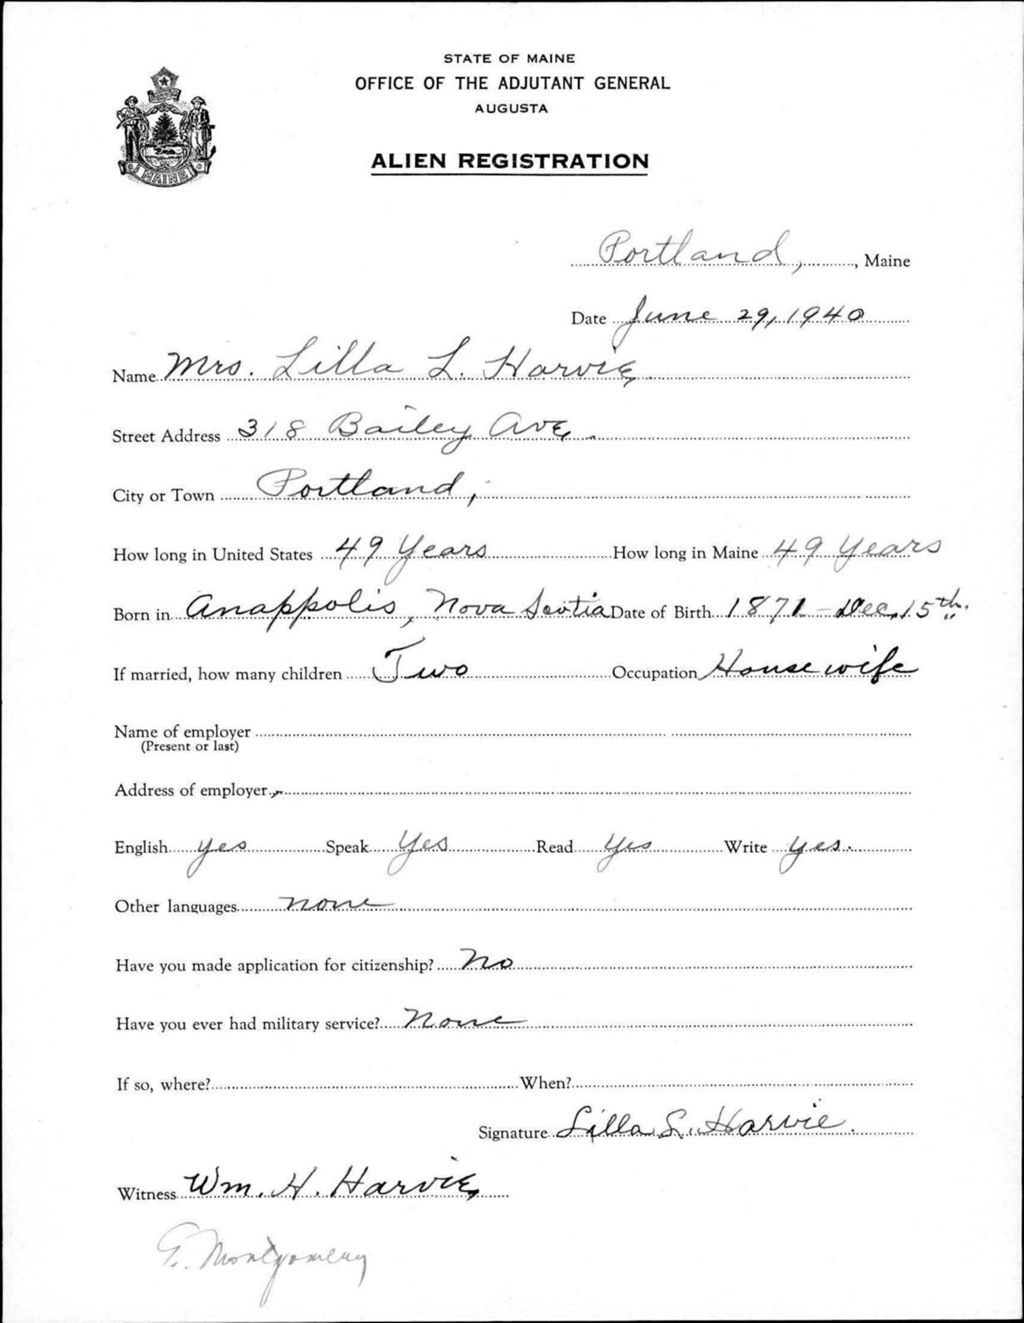 STATE OF MAINE
OFFICE OF THE ADJUTANT GENERAL
AUGUSTA
ALIEN REGISTRATION
MAINE
Portland, , Maine
Date June 29, 1940
Name Mrs. Lilla L. Harvie
Street Address 318 Bailey Ave.
City or Town Portland,
How long in United States 49 Years How long in Maine 49 Years
Born in Anappolis, Nova Scotia Date of Birth 1871 - Dec. 15th.
If married, how many children Two Occupation Housewife
Name of employer
(Present or last)
Address of employer
English yes Speak Yes Read Yes Write yes.
Other languages none
Have you made application for citizenship? No
Have you ever had military service? None
If so, where? When?
Signature Lilla L. Harvie.
Witness Wm. H. Harvie
E. Montgomery